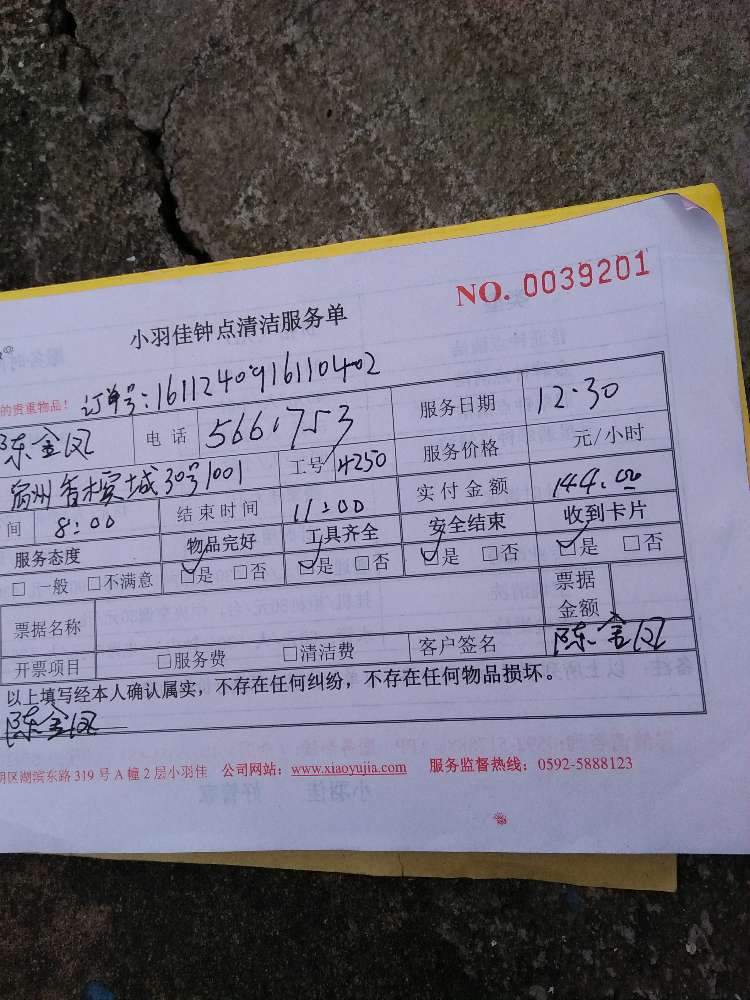 NO. 0039201
小羽佳钟点清洁服务单
的贵重物品! 订单号:161124091611040402
陈金凤 电话 5661753 服务日期 12.30
香槟城30号1001 工号 4250 服务价格 元/小时
间 8:00 结束时间 11:00 实付金额 144.00
服务态度 物品完好 工具齐全 安全结束 收到卡片
□一般 □不满意 □是 □否 □是 □否 □是 □否 □是 □否
票据名称 票据金额
开票项目 □服务费 □清洁费 客户签名 陈金凤
以上填写经本人确认属实,不存在任何纠纷,不存在任何物品损坏。
陈金凤
明区湖滨东路 319 号 A 幢 2 层小羽佳 公司网站:www.xiaoyujia.com 服务监督热线:0592-5888123